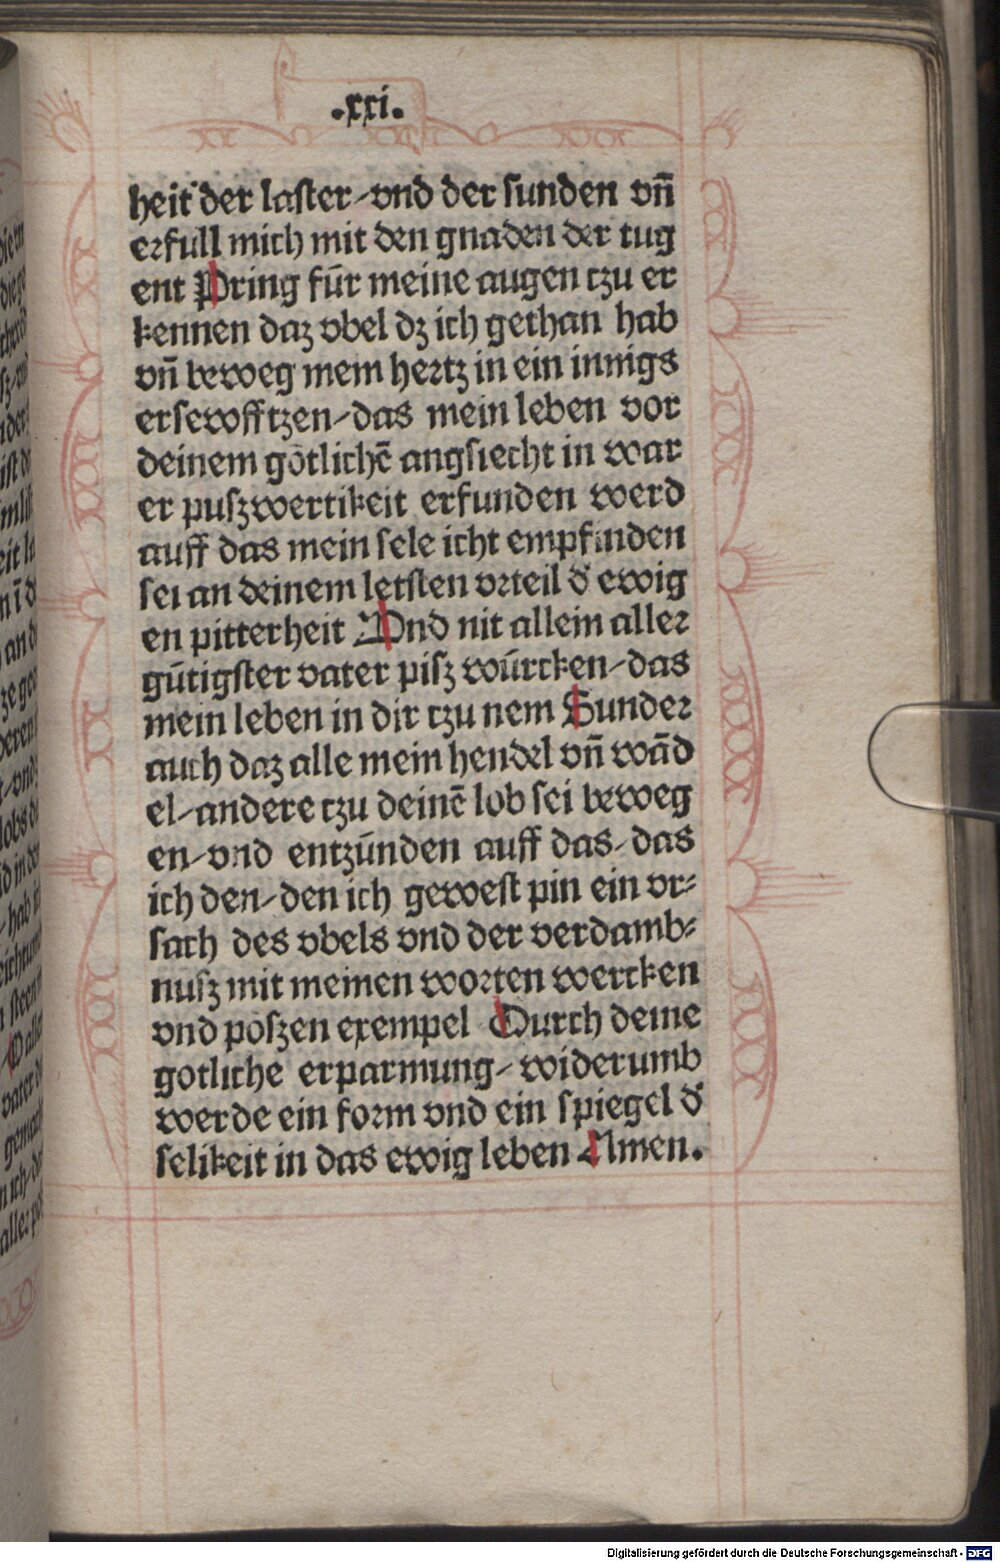 .xxi.
heit der laster/vnd der sunden vñ
erfull mich mit den gnaden der tug
ent Pring fůr meine augen tzu er
kennen daz vbel dz ich gethan hab
vñ beweg mein hertz in ein innigs
ersewfftzen/das mein leben vor
deinem gótlichē angsiecht in war
er puszwertikeit erfunden werd
auff das mein sele icht empfinden
sei an deinem letsten vrteil d' ewig
en pitterheit Vnd nit allein aller
gůtigster vater pisz wůrcken/das
mein leben in dir tzu nem Sunder
auch daz alle mein hendel vñ wād
el/andere tzu deinē lob sei beweg
en/vnd entzůnden auff das/das
ich den/den ich gewest pin ein vr⸗
sach des vbels vnd der verdamb⸗
nusz mit meinen worten wercken
vnd pószen exempel Durch deine
gotliche erparmung/widerumb
werde ein form vnd ein spiegel d'
selikeit in das ewig leben Amen.
Digitalisierung gefördert durch die Deutsche Forschungsgemeinschaft - DFG